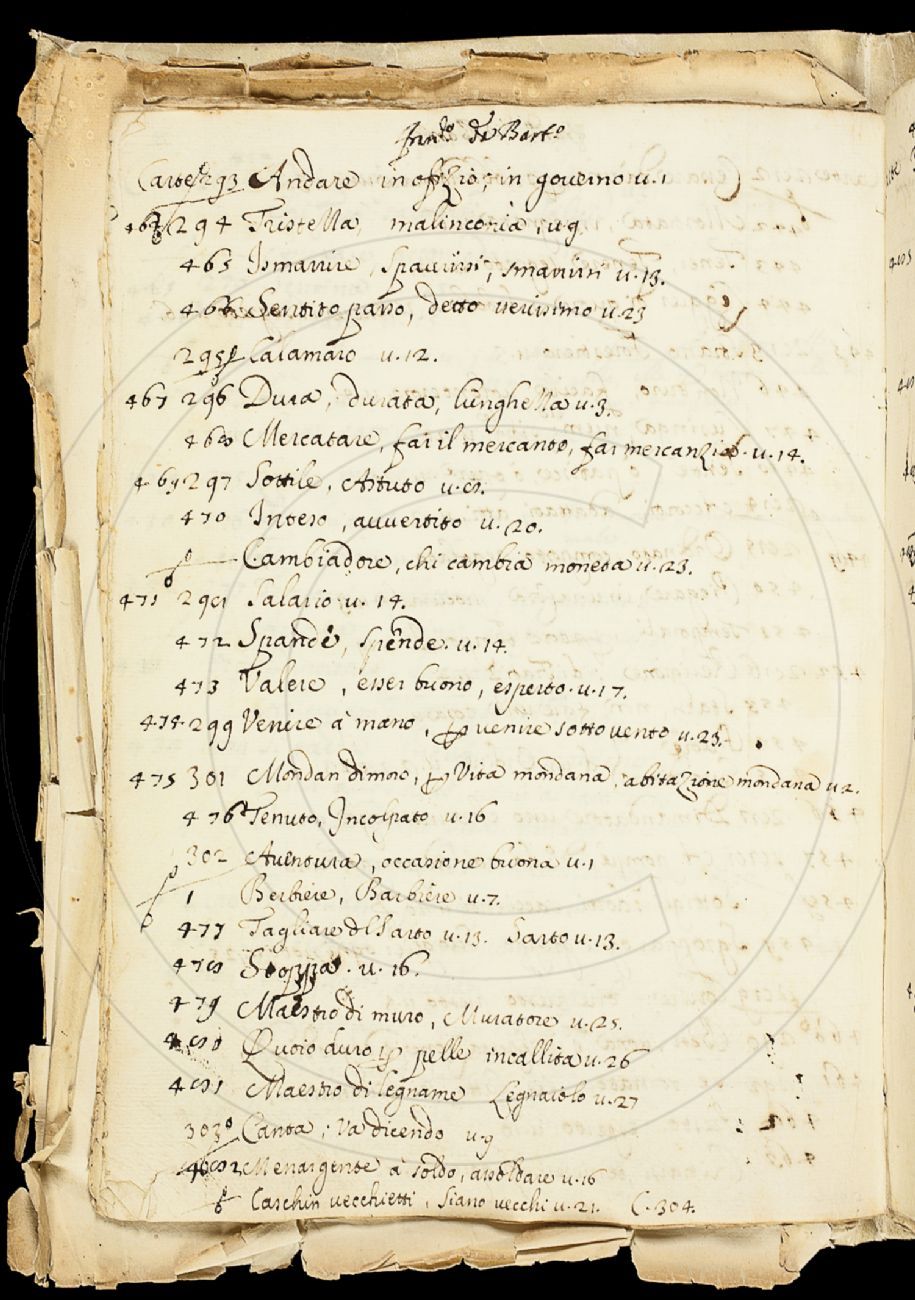 de Bart.º
Carte 293 Andare in offizio, in governo v. 1
294 Tristella, malinconia, v. 9.
465 Ismarrire, smarrirsi v. 13.
466 Sentito detto verissimo v. 23
295 Calamaro v. 12.
467 296 Dura, durata, lunghella v. 3.
468 Mercatare, far il mercante, far mercanzie. v. 14.
469 297 Sottile, Astuto v. 8.
470 Inteso, avvertito v. 20.
Cambiadore, chi cambia moneta v. 23.
471 298 Salario v. 14.
472 Spande, spende. v. 14.
473 Valere, esser buono, esperto. v. 17.
474. 299 Venire à mano, p venire sotto vento v. 23.
475 301 Mondan dimoro, p Vita mondana, abitazione mondana v. 2.
476 Tenuto, Incolpato v. 16
302 Aventura, occasione buona v. 1
1 Berbiere, Barbiere v. 7.
477 Tagliare del Sarto v. 13. Sarto v. 13.
478 Stoppa. v. 16.
479 Maestro di muro, Muratore v. 25.
480 Quoio duro p pelle incallita v. 26
481 Maestro di legname Legnaiolo v. 27
303 Canta, Va dicendo v. 9
482 Menar gente à soldo, assoldare v. 16
vecchietti, siano vecchi v. 21. C. 304.